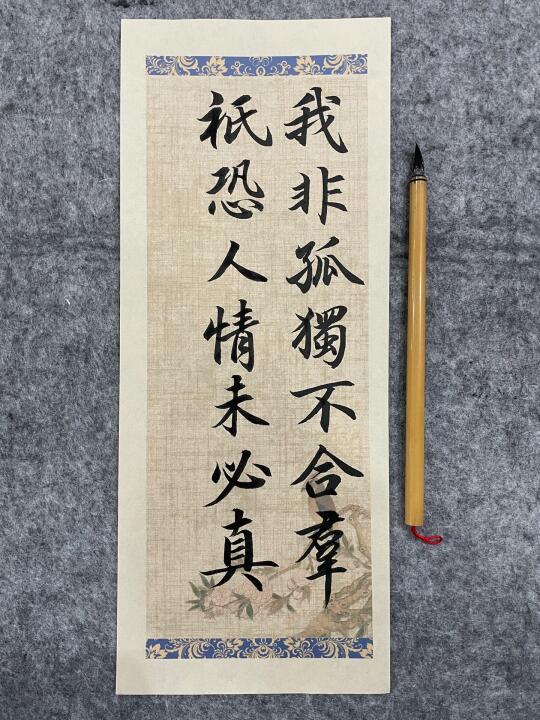 我非孤獨不合羣
祇恐人情未必真